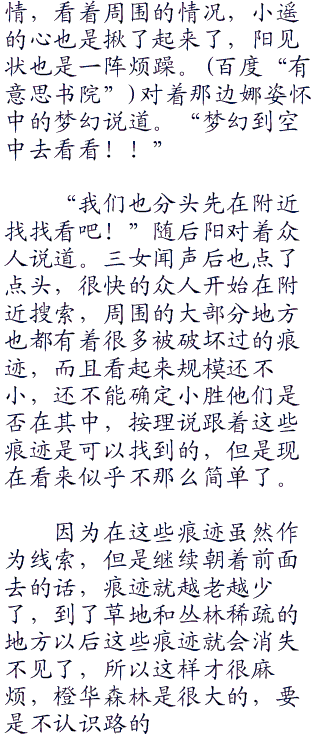 情，看着周围的情况，小遥
的心也是揪了起来了，阳见
状也是一阵烦躁。(百度“有
意思书院”)对着那边娜姿怀
中的梦幻说道。“梦幻到空
中去看看！！”
“我们也分头先在附近
找找看吧！”随后阳对着众
人说道。三女闻声后也点了
点头，很快的众人开始在附
近搜索，周围的大部分地方
也都有着很多被破坏过的痕
迹，而且看起来规模还不
小，还不能确定小胜他们是
否在其中，按理说跟着这些
痕迹是可以找到的，但是现
在看来似乎不那么简单了。
因为在这些痕迹虽然作
为线索，但是继续朝着前面
去的话，痕迹就越老越少
了，到了草地和丛林稀疏的
地方以后这些痕迹就会消失
不见了，所以这样才很麻
烦，橙华森林是很大的，要
是不认识路的